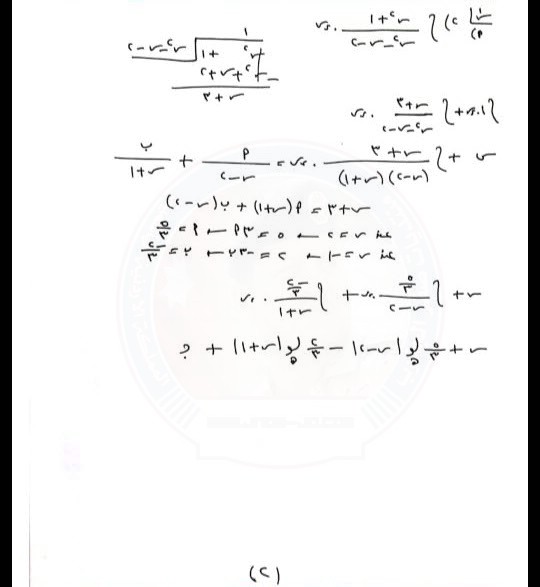 ٢) ∫ (س٢ + ١)/(س٢ − س − ٢) . ءس
١
س٢ + ١ | س٢ − س − ٢
− س٢ + س + ٢
س + ٣
∫ ١.ءس + ∫ (س + ٣)/(س٢ − س − ٢) . ءس
س + ∫ (س + ٣)/((س − ٢)(س + ١)) . ءس = أ/(س − ٢) + ب/(س + ١)
س + ٣ = أ(س + ١) + ب(س − ٢)
عند س = ٢ ← ٥ = ٣أ ← أ = ٥/٣
عند س = −١ ← ٢ = −٣ب ← ب = −٢/٣
س + ∫ (٥/٣)/(س − ٢) . ءس + ∫ (−٢/٣)/(س + ١) . ءس
س + ٥/٣ لوـه |س − ٢| − ٢/٣ لوـه |س + ١| + ج
(٢)